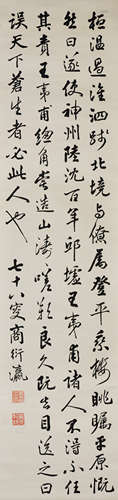 桓温過淮泗踐北境與僚属登平乘樓眺矚中原慨
然曰遂使神州陸沈百年邱墟王夷甫諸人不得不任
其責王夷甫總角嘗造山濤嗟歎良久既去目送之曰
误天下蒼生者必此人也
七十八叟商衍瀛